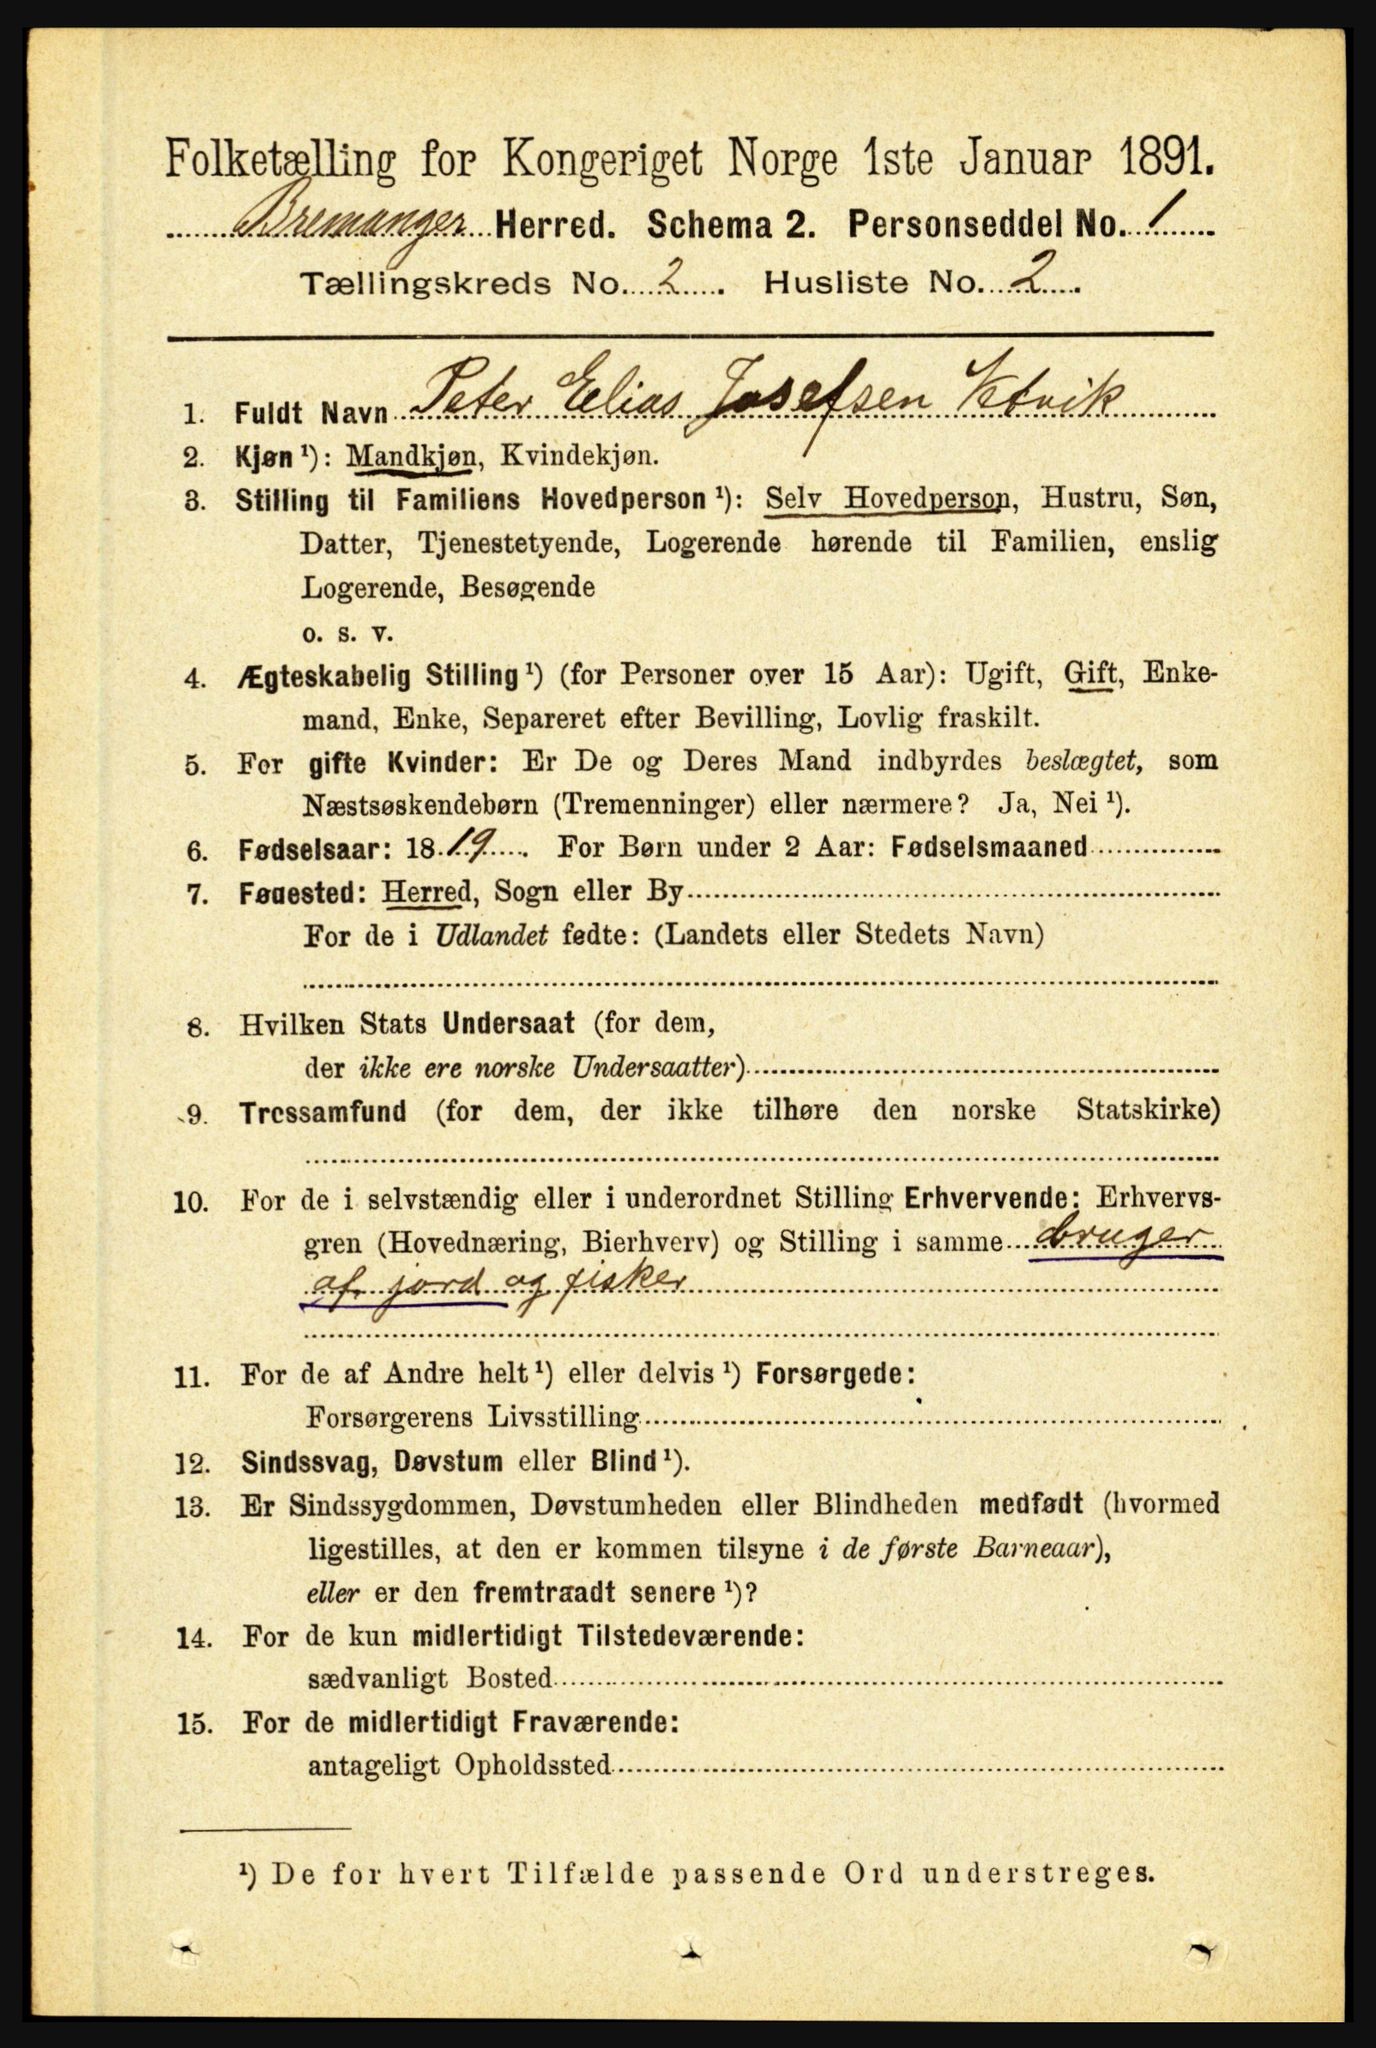 Folketælling for Kongeriget Norge 1ste Januar 1891.
Bremanger Herred. Schema 2. Personseddel No. 1
Tællingskreds No. 2. Husliste No. 2.
1. Fuldt Navn Peter Elias Josefsen Vetvik
2. Kjøn ¹): Mandkjøn, Kvindekjøn.
3. Stilling til Familiens Hovedperson ¹): Selv Hovedperson, Hustru, Søn,
Datter, Tjenestetyende, Logerende hørende til Familien, enslig
Logerende, Besøgende
o. s. v.
4. Ægteskabelig Stilling ¹) (for Personer over 15 Aar): Ugift, Gift, Enke-
mand, Enke, Separeret efter Bevilling, Lovlig fraskilt.
5. For gifte Kvinder: Er De og Deres Mand indbyrdes beslægtet, som
Næstsøskendebørn (Tremenninger) eller nærmere? Ja, Nei ¹).
6. Fødselsaar: 1819. For Børn under 2 Aar: Fødselsmaaned
7. Fødested: Herred, Sogn eller By
For de i Udlandet fødte: (Landets eller Stedets Navn)
8. Hvilken Stats Undersaat (for dem,
der ikke ere norske Undersaatter)
9. Trossamfund (for dem, der ikke tilhøre den norske Statskirke)
10. For de i selvstændig eller i underordnet Stilling Erhvervende: Erhvervs-
gren (Hovednæring, Bierhverv) og Stilling i samme bruger
af jord og fisker
11. For de af Andre helt ¹) eller delvis ¹) Forsørgede:
Forsørgerens Livsstilling
12. Sindssvag, Døvstum eller Blind ¹).
13. Er Sindssygdommen, Døvstumheden eller Blindheden medfødt (hvormed
ligestilles, at den er kommen tilsyne i de første Barneaar),
eller er den fremtraadt senere ¹)?
14. For de kun midlertidigt Tilstedeværende:
sædvanligt Bosted
15. For de midlertidigt Fraværende:
antageligt Opholdssted
¹) De for hvert Tilfælde passende Ord understreges.